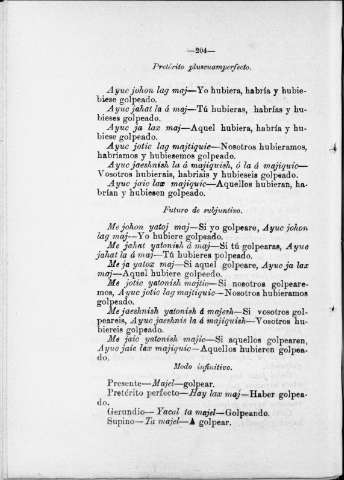 —204—
Pretérito pluscuamperfecto.
Ayuc johon lag maj—Yo hubiera, habría y hubie-
biese golpeado.
Ayuc jahat la á maj—Tú hubieras, habrías y hu-
bieses golpeado.
Ayuc ja lax maj—Aquel hubiera, habría y hu-
biese golpeado.
Ayuc jotic lag majtiquic—Nosotros hubieramos,
habríamos y hubiesemos golpeado.
Ayuc jaeshnish la á majiquish, ó la á majiquic—
Vosotros hubierais, habriais y hubieseis golpeado.
Ayuc jaic lax majiquic—Aquellos hubieran, ha-
brían y hubiesen golpeado.
Futuro de subjuntivo.
Me johon yatoj maj—Si yo golpeare, Ayuc johon
lag maj—Yo hubiere golpeado.
Me jahat yatonish á maj—Si tú golpearas, Ayuc
jahat la á maj—Tú hubieres polpeado.
Me ja yatox maj—Si aquel golpeare, Ayuc ja lax
maj—Aquel hubiere golpeedo.
Me jotic yatonish majtic—Si nosotros golpeare-
mos, Ayuc jotic lag majtiquic—Nosotros hubieramos
golpeado.
Me jaeshnish yatonish á majesh—Si vosotros gol-
peareis, Ayuc jaeshnis la á majiquish—Vosotros hu-
biereis golpeado.
Me jaic yatonish majic—Si aquellos golpearen,
Ayuc jaic lax majiquic—Aquellos hubieren golpea-
do.
Modo infinitivo.
Presente—Majel—golpear.
Pretérito perfecto—Hay lax maj—Haber golpea-
do.
Gerundio—Yacol ta majel—Golpeando.
Supino—Ta majel—A golpear.